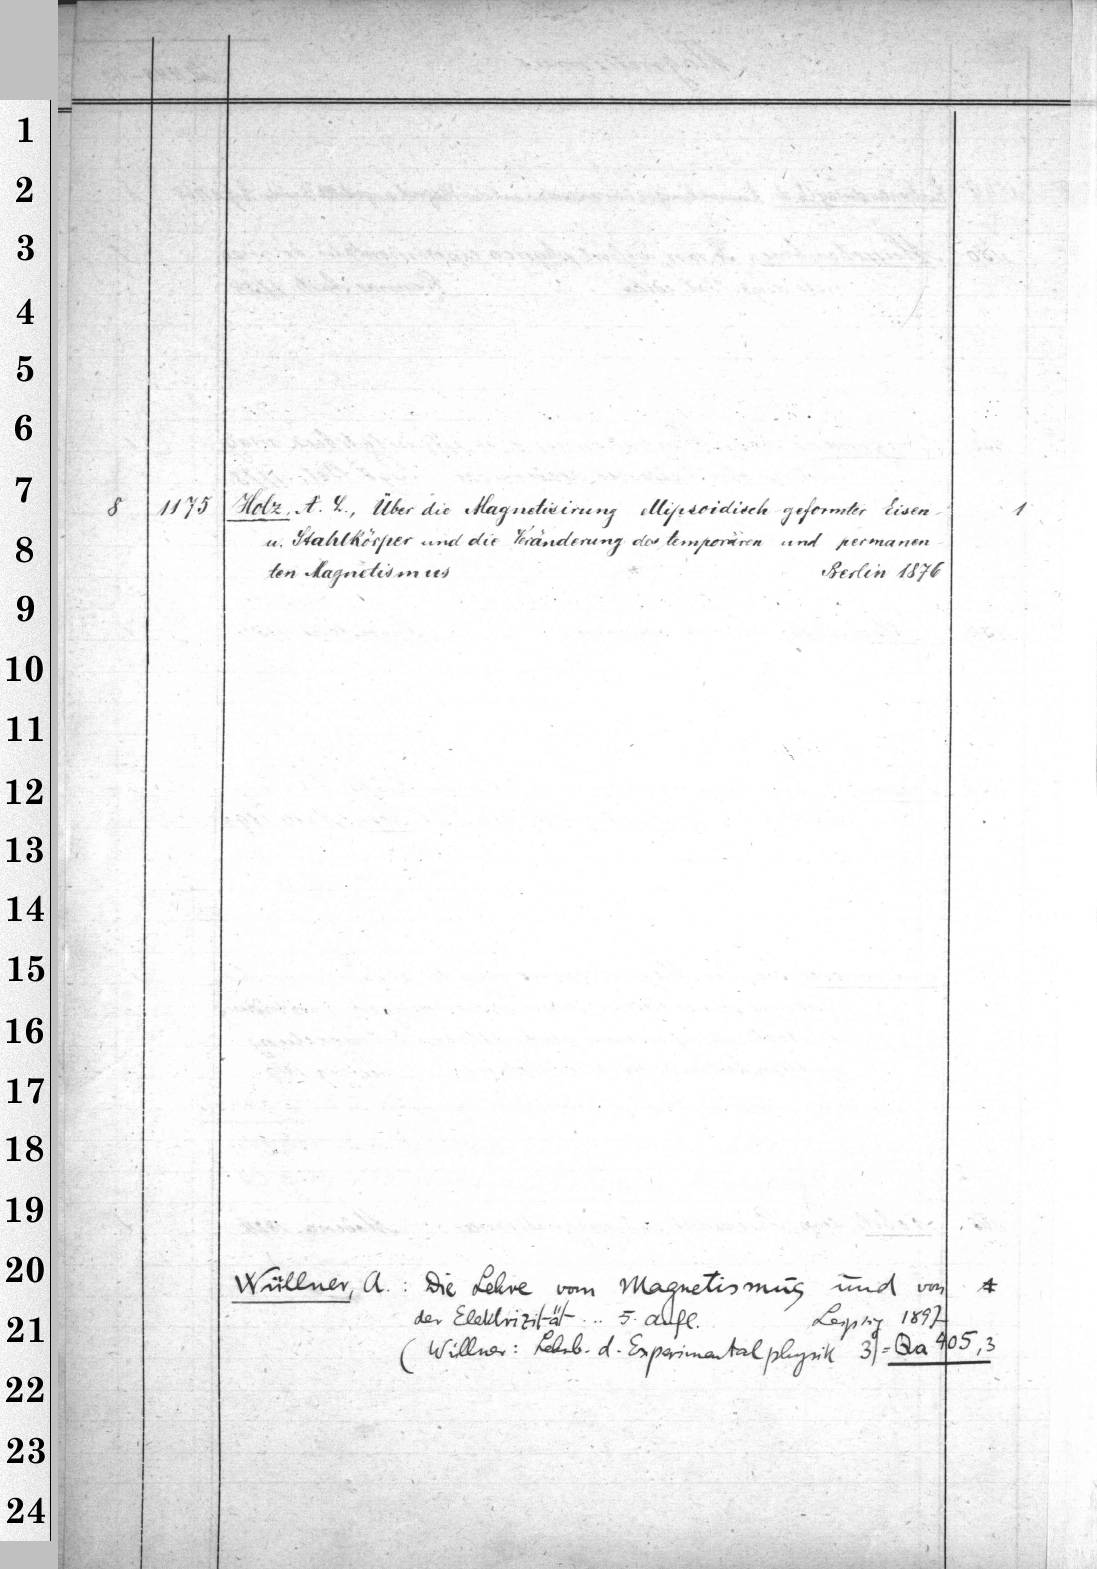 1
2
3
4
5
6
7
8 1175 Holz, A. L., Über die Magnetisirung ellipsoidisch geformter Eisen- 1
8
u. Stahlkörper und die Veränderung des temporären und permanen-
ten Magnetismus Berlin 1876
9
10
11
12
13
14
15
16
17
18
19
20
Wüllner, A. : Die Lehre vom Magnetismus und von
der Elektrizität ... 5. Aufl. Leipzig 1897
21
(Wüllner: Lehrb. d. Experimentalphysik 3) = Qa 405,3
22
23
24